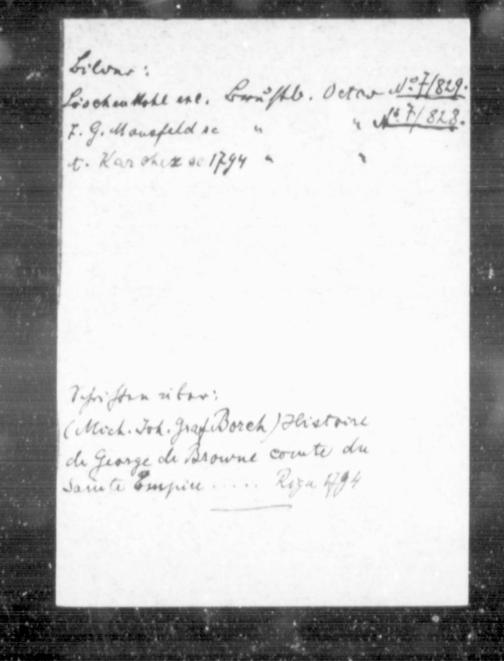 Bilder:
Löschenkohl exc. Brustb. Octav No 7/829.
F. G. Mansfeld sc " " No 7/828.
t. Karchex sc 1794 " "
Schriften über:
(Mich. Joh. Graf Borch) Histoire
de George de Browne comte du
Sainte Empire ..... Riga 1794